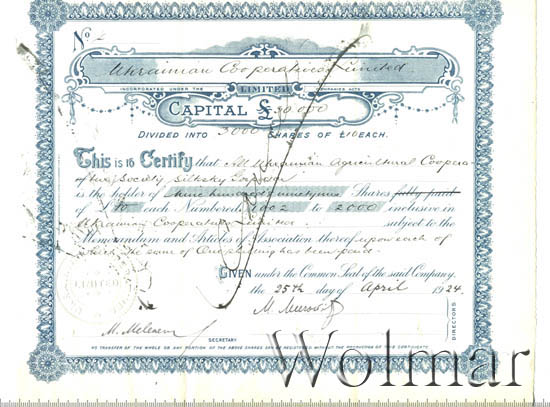 No 2
Ukrainian Cooperatives Limited
INCORPORATED UNDER THE COMPANIES ACTS
LIMITED
CAPITAL £ 30 000
DIVIDED INTO 3000 SHARES OF £10 EACH.
This is to Certify that All Ukrainian Agricultural Coopera
tive Society
is the holder of Nine hundred ninetynine Shares fully paid
of £10 each Numbered 1002 to 2000 inclusive in
Ukrainian Cooperatives Limited subject to the
Memorandum and Articles of Association thereof upon each of
which the sum of One shilling has been paid.
GIVEN under the Common Seal of the said Company,
the 25th day of April 1924.
DIRECTORS
SECRETARY
NO TRANSFER OF THE WHOLE OR ANY PORTION OF THE ABOVE SHARES CAN BE REGISTERED WITHOUT THE PRODUCTION OF THIS CERTIFICATE
Wolmar